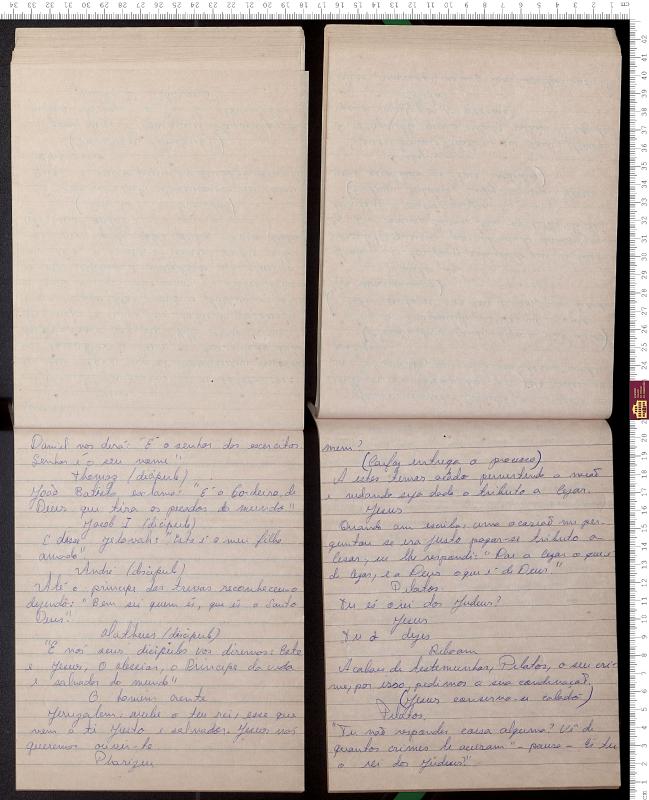 Daniel nos dirá: "É o senhor dos exercitos
Senhor é o seu nome"
Thomaz (discipulo)
João Batista exclama: "É o Cordeiro de
Deus que tira os pecados do mundo"
Jacob I (discipulo)
E disse Jehovah: "Este é o meu filho
amado"
André (discipulo)
Até o principe das trevas reconheceu-o
dizendo: "Bem sei quem és, que és o Santo
Deus"
Matheus (discipulo)
"E nós seus discipulos vos diremos: Este
é Jesus, O Messias, o Principe da vida
e salvador do mundo"
O homem crente
Jerusalem: recebe o teu rei, esse que
vem a ti Justo e salvador. Jesus nós
queremos ouvir-te
Phariseu
mem?
(Caifaz entrega o processo)
A este temos achado pervertendo a nação
e vedando seja dado o tributo a Cezar.
Jesus
Quando um escriba, uma ocasião me per-
guntou se era justo pagar-se tributo a
Cesar, eu lhe respondi: "Dai a Cezar o que é
de Cezar, e a Deus o que é de Deus."
Pilatos
Tu és o rei dos Judeus?
Jesus
Tu o dizes
Riboam
Acabas de testimunhar, Pilatos, o seu cri-
me, por isso, pedimos a sua condenação.
(Jesus conserva-se calado)
Pilatos.
"Tu não respondes cousa alguma? Vê de
quantos crimes te acusam" - pausa - És tu
o rei dos Judeus?"